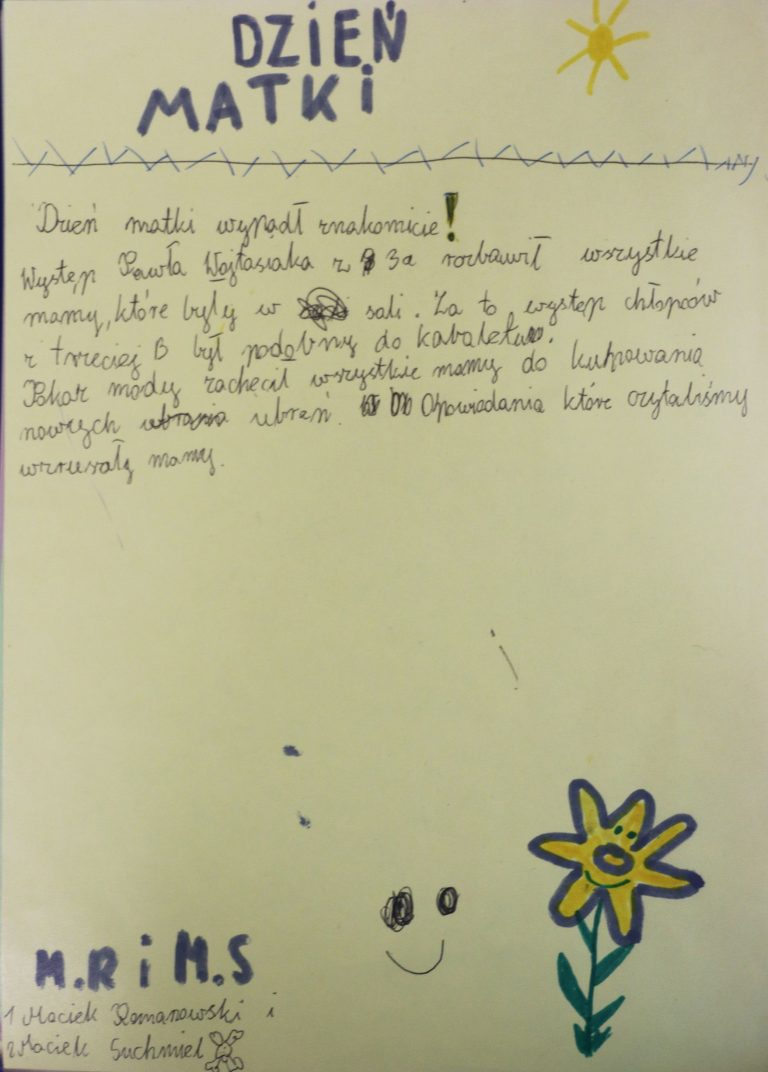 DZIEŃ
MATKI
Dzień matki wypadł znakomicie!
Występ Pawła Wojtasiaka z 3a rozbawił wszystkie
mamy, które były w sali. Za to występ chłopców
z trzeciej B był podobny do kabaletu.
Pokaz mody zachęcił wszystkie mamy do kupowania
nowych ubrań. Opowiadania które czytaliśmy
wzruszały mamy.
M.R i M.S
1 Maciek Romanowski i
2 Maciek Suchmiel